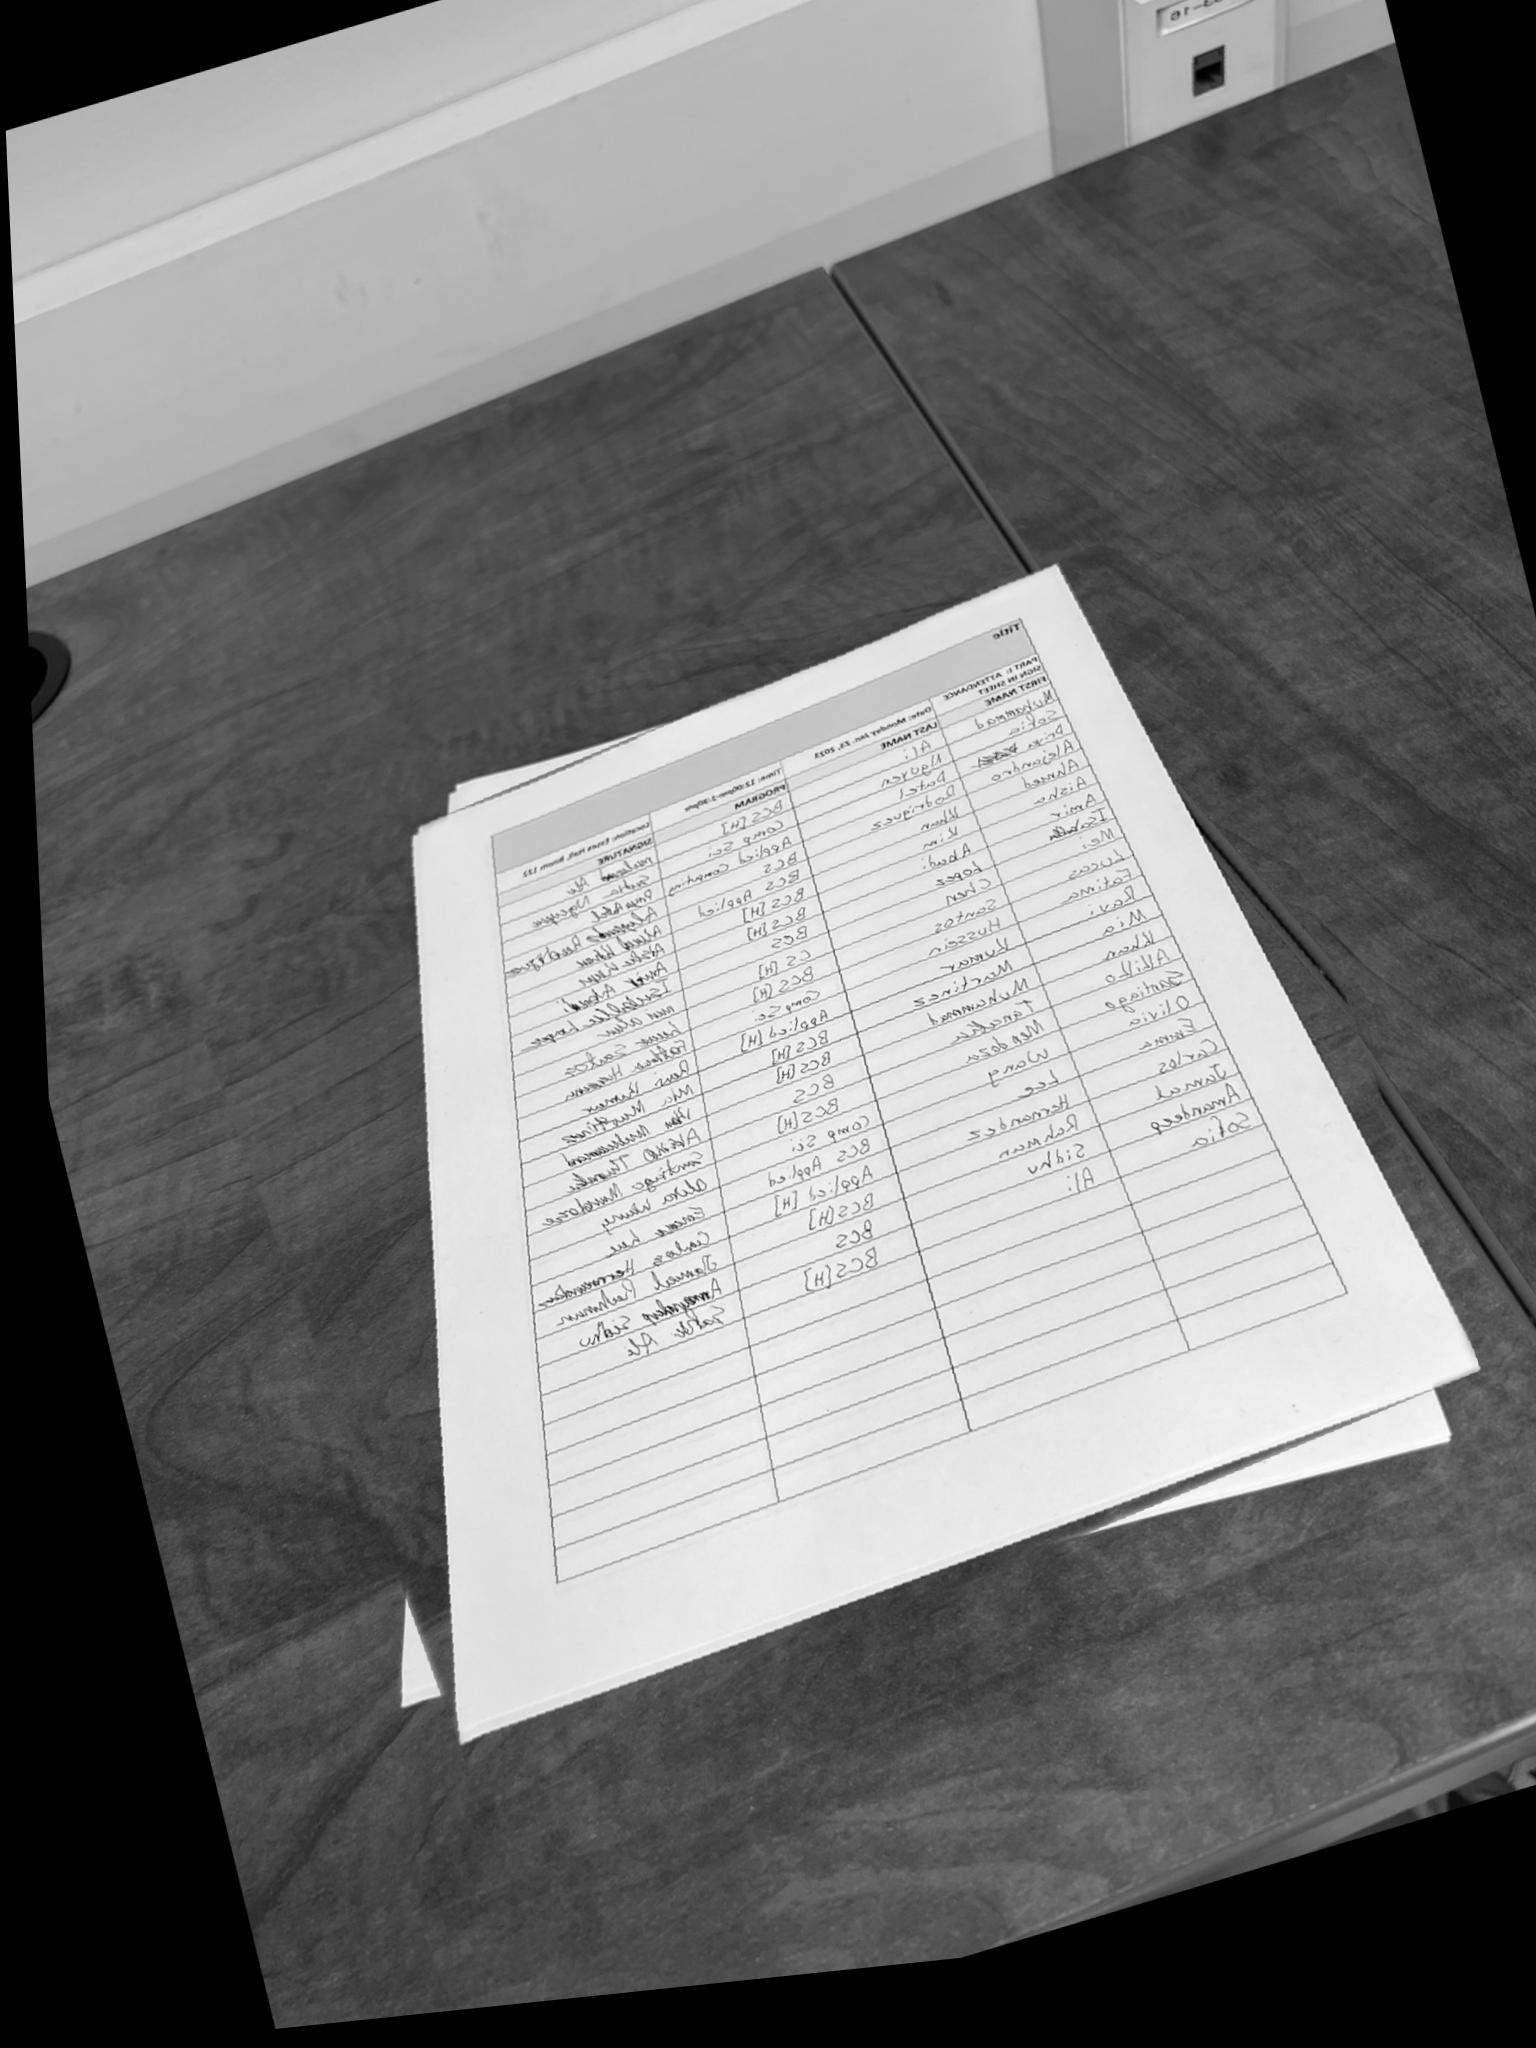 Title
PART I: ATTENDANCE SIGN IN SHEET Date: Monday Jan. 23, 2023 Time: 12:00pm-1:30pm Location: Essex Hall, Room 122
FIRST NAME LAST NAME PROGRAM SIGNATURE
Muhammad Ali BCS[H] Ali
Sofia Nguyen Comp Sci Sofia Nguyen
Priya Patel Applied Computing Priya Patel
Alejandro Rodriguez BCS Alejandro Rodriguez
Ahmed Khan BCS Applied Ahmed Khan
Aisha Kim BCS[H] Aisha Kim
Amir Abadi BCS[H] Amir Abadi
Isabella Lopez BCS Isabella Lopez
Mei Chen CS[H] mei chen
Lucas Santos BCS[H] Lucas Santos
Fatima Hussein Comp Sci Fatima Hussein
Ravi Kumar Applied[H] Ravi Kumar
Mia Martinez BCS[H] Mia Martinez
Khan Muhammad BCS[H] Khan Muhammad
BCS
Santiago Mendoza BCS[H] Santiago Mendoza
Olivia Wang Comp Sci Olivia Wang
Emma Lee BCS Applied Emma Lee
Carlos Hernandez Applied [H] Carlos Hernandez
Jamal Rahman BCS[H] Jamal Rahman
Amandeep Sidhu BCS Amandeep Sidhu
Sofia Ali BCS[H] Sofia Ali